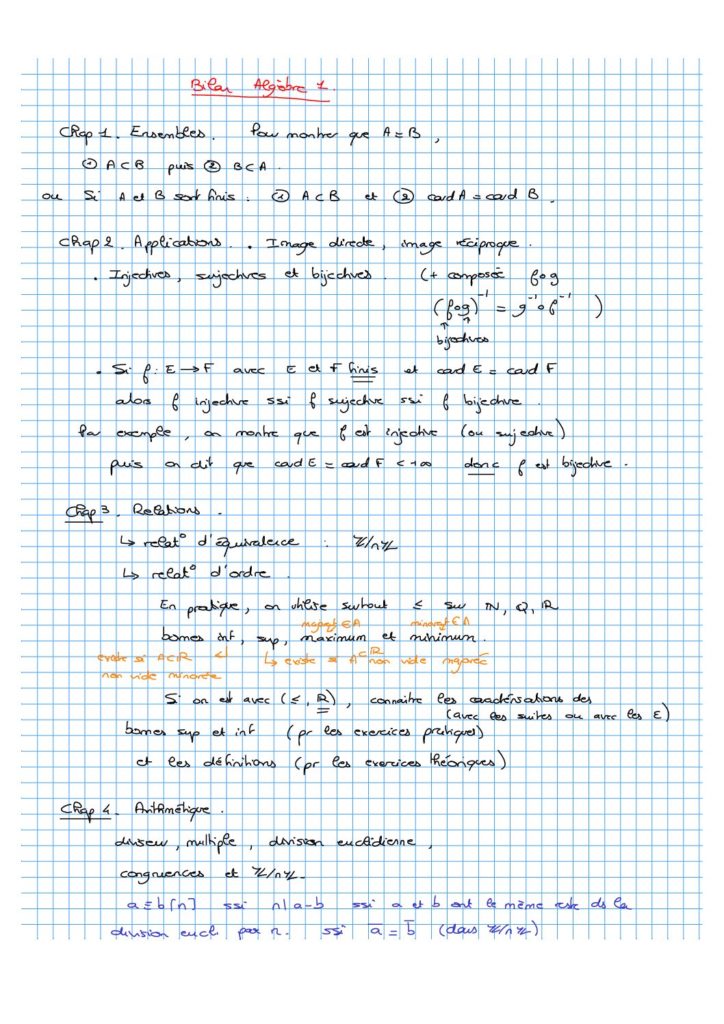 Bilan Algèbre 1.
Chap 1. Ensembles. Pour montrer que A = B,
① A ⊂ B puis ② B ⊂ A.
ou Si A et B sont finis : ① A ⊂ B et ② card A = card B.
Chap 2. Applications. • Image directe, image réciproque.
• Injectives, surjectives et bijectives. (+ composée f∘g
(f∘g)⁻¹ = g⁻¹∘f⁻¹ )
↑ ↑
bijectives
• Si f : E → F avec E et F finis et card E = card F
alors f injective ssi f surjective ssi f bijective.
Par exemple, on montre que f est injective (ou surjective)
puis on dit que card E = card F < +∞ donc f est bijective.
Chap 3. Relations.
↳ relat° d'équivalence : ℤ/nℤ
↳ relat° d'ordre.
En pratique, on utilise surtout ≤ sur ℕ, ℚ, ℝ
majorant ∈ A minorant ∈ A
bornes inf, sup, maximum et minimum.
existe si A ⊂ ℝ ↲ ↳ existe si A ⊂ ℝ non vide majorée
non vide minorée
Si on est avec (≤, ℝ), connaitre les caractérisations des
(avec les suites ou avec les ε)
bornes sup et inf (pr les exercices pratiques)
et les définitions (pr les exercices théoriques)
Chap 4. Arithmétique.
diviseur, multiple, division euclidienne,
congruences et ℤ/nℤ.
a ≡ b [n] ssi n | a-b ssi a et b ont le même reste ds la
division eucl. par n. ssi a̅ = b̅ (dans ℤ/nℤ)